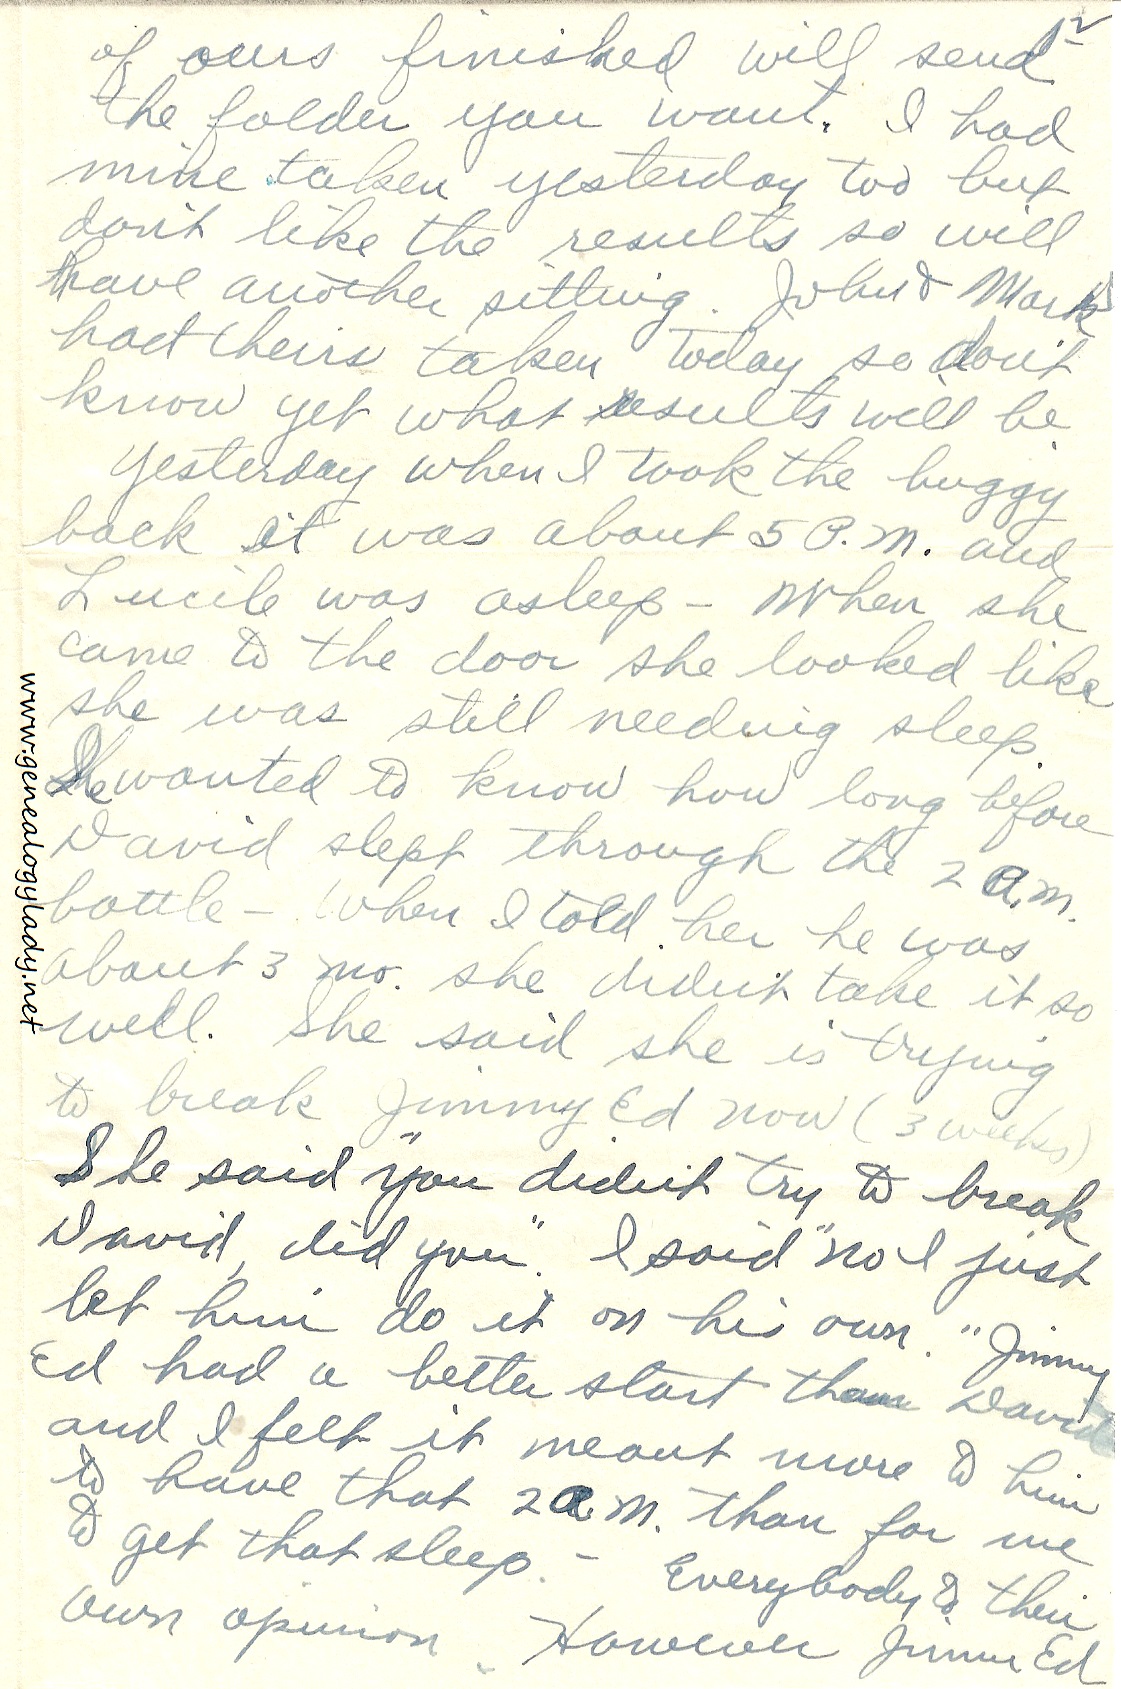 2
of ours finished will send
the folder you want. I had
mine taken yesterday too but
don't like the results so will
have another sitting. John & Mark
had theirs taken today so don't
know yet what results will be
Yesterday when I took the buggy
back it was about 5 P.M. and
Lucile was asleep - When she
came to the door she looked like
she was still needing sleep.
She wanted to know how long before
David slept through the 2 a.m.
bottle - When I told her he was
about 3 mo. she didn't take it so
well. She said she is trying
to break Jimmy Ed now (3 weeks)
She said "you didn't try to break
David, did you". I said "no I just
let him do it on his own." Jimmy
Ed had a better start than David
and I felt it meant more to him
to have that 2 a.m. than for me
to get that sleep. - Everybody to their
own opinion. However Jimmy Ed
www.genealogylady.net